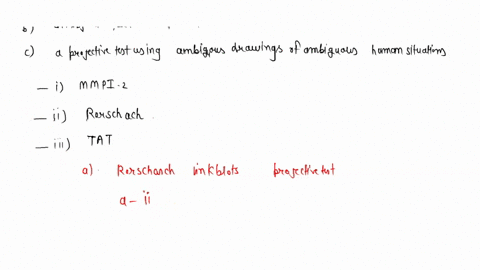 b)
c) a projective test using ambigous drawings of ambiguous human situations
— i) MMPI-2
— ii) Rorschach
— iii) TAT
a) Rorschach inkblots projective test
a - ii